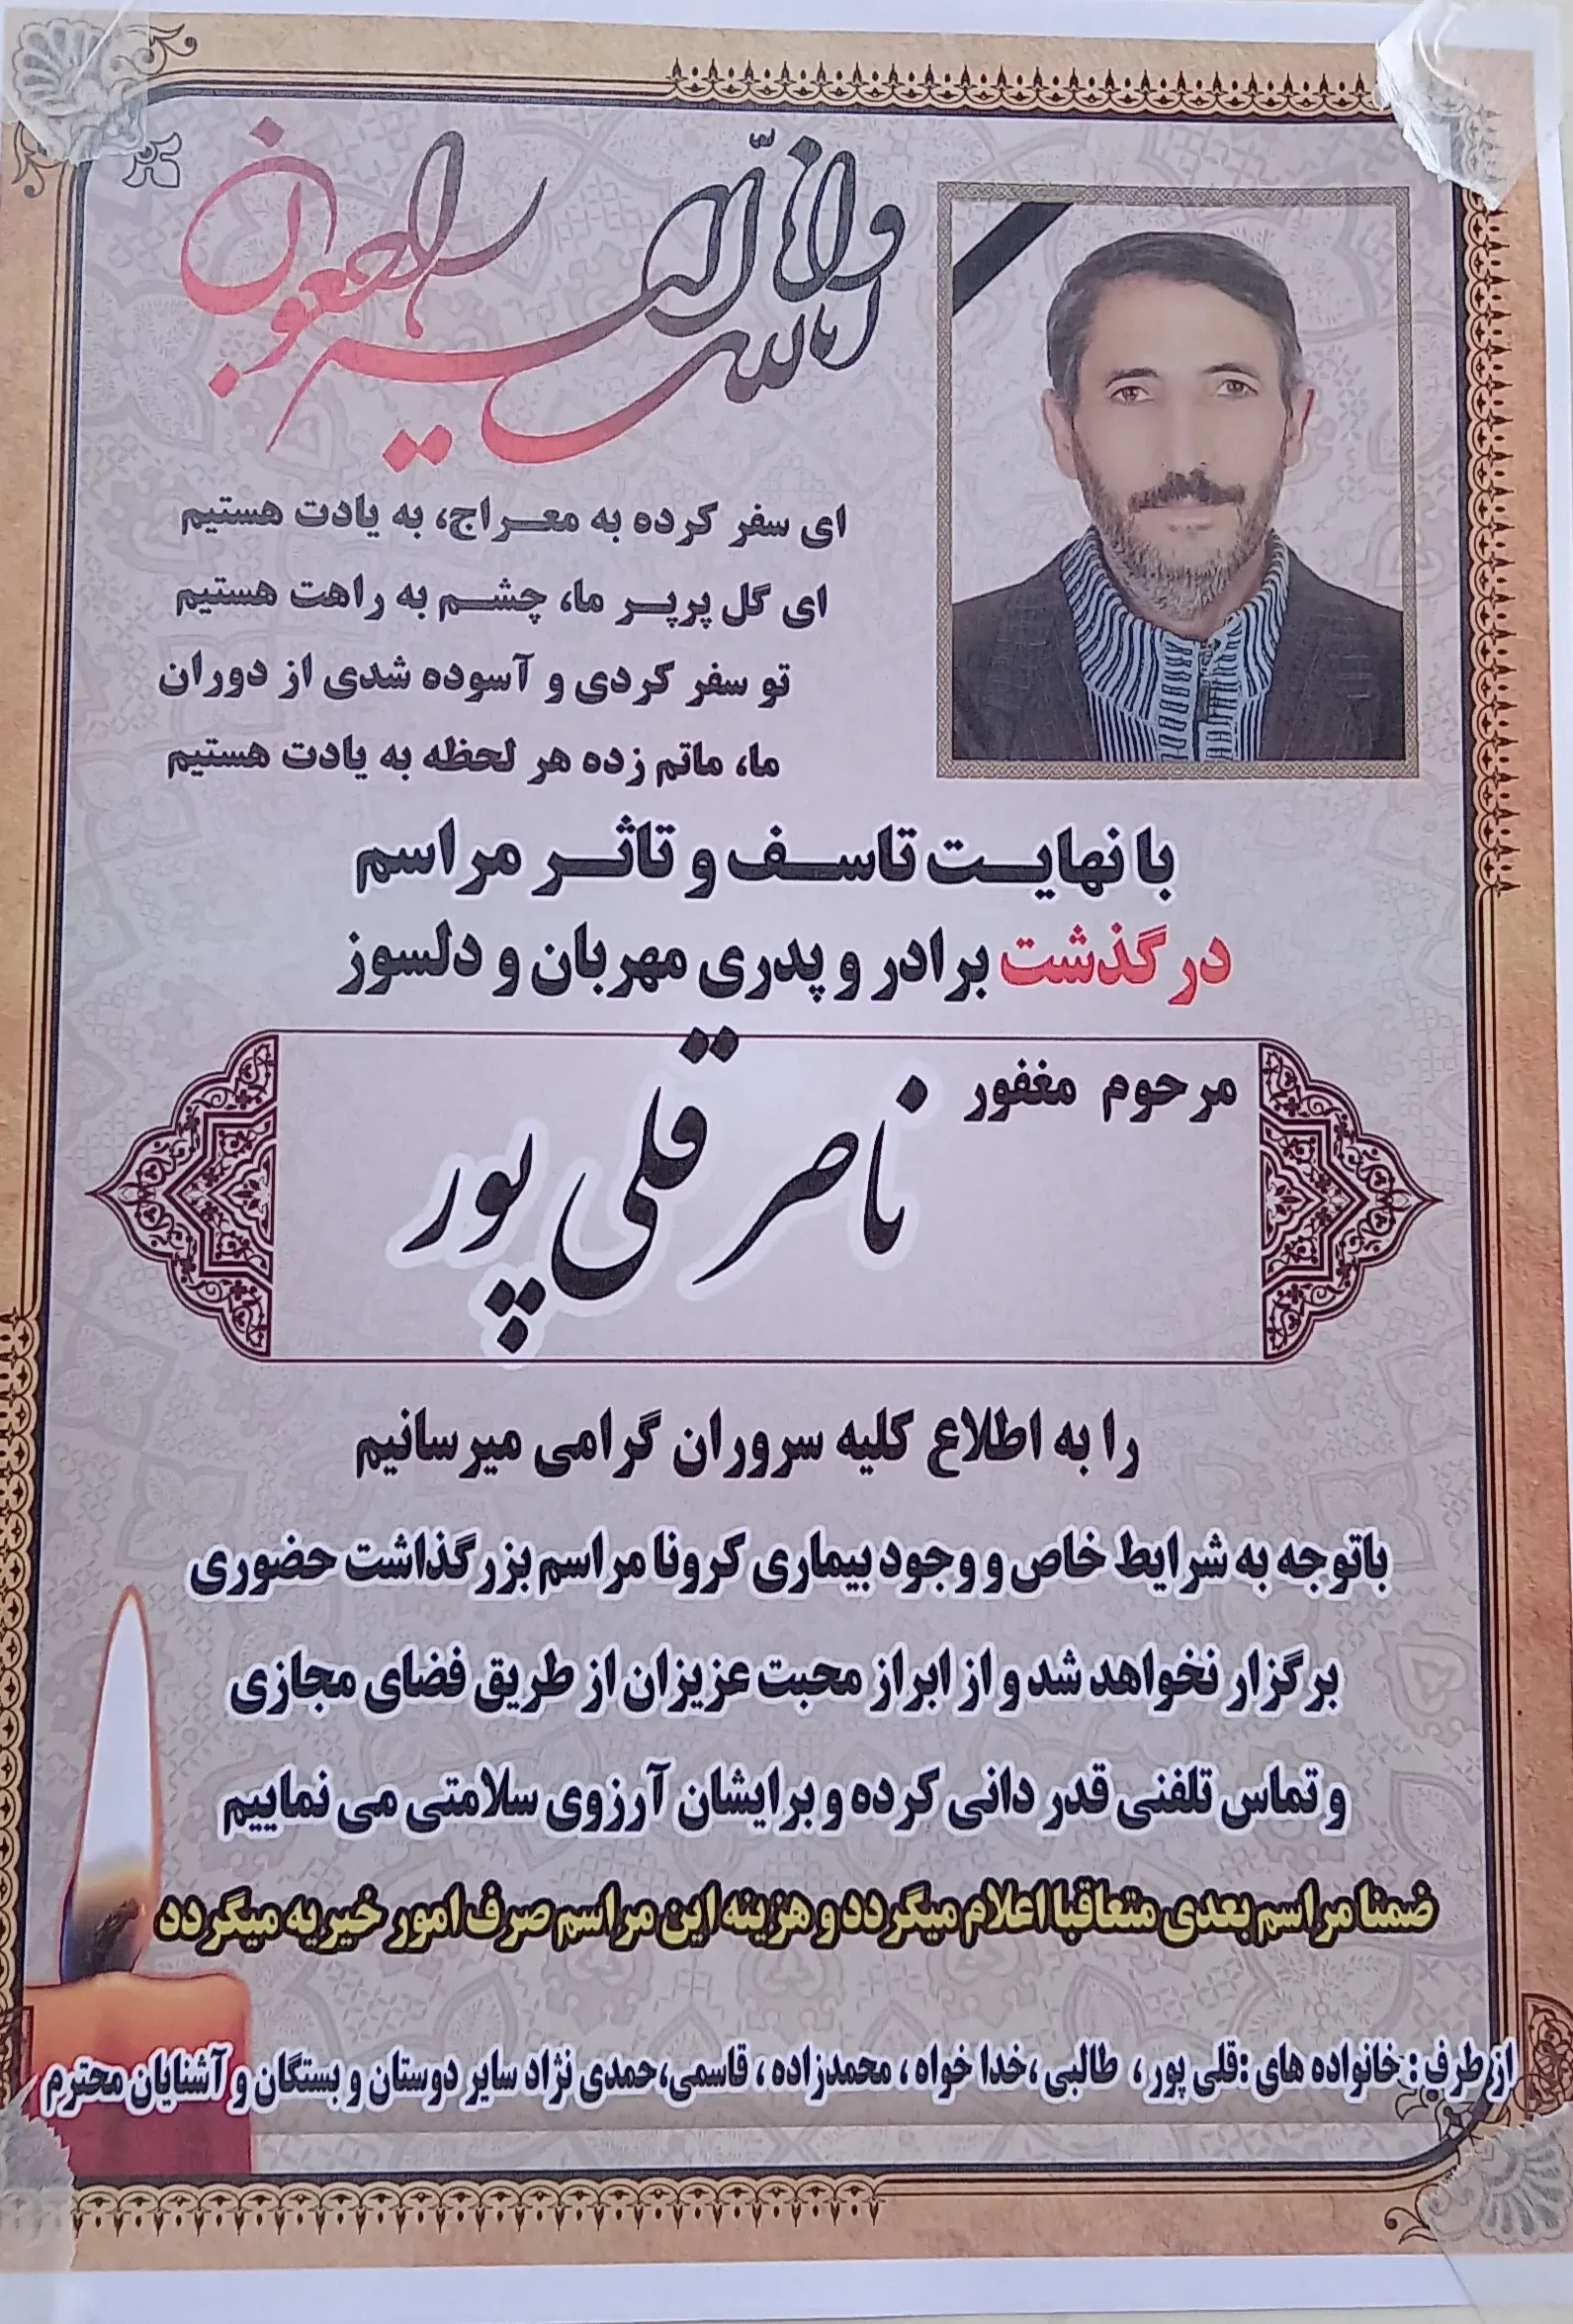 انا لله و انا الیه راجعون
ای سفر کرده به معراج، به یادت هستیم
ای گل پرپر ما، چشم به راهت هستیم
تو سفر کردی و آسوده شدی از دوران
ما، ماتم زده هر لحظه به یادت هستیم
با نهایت تاسف و تاثر مراسم
درگذشت برادر و پدری مهربان و دلسوز
مرحوم مغفور
ناصر قلی پور
را به اطلاع کلیه سروران گرامی میرسانیم
باتوجه به شرایط خاص و وجود بیماری کرونا مراسم بزرگذاشت حضوری
برگزار نخواهد شد و از ابراز محبت عزیزان از طریق فضای مجازی
و تماس تلفنی قدر دانی کرده و برایشان آرزوی سلامتی می نماییم
ضمنا مراسم بعدی متعاقبا اعلام میگردد و هزینه این مراسم صرف امور خیریه میگردد
از طرف : خانواده های :قلی پور ، طالبی ،خدا خواه ، محمدزاده ، قاسمی،حمدی نژاد سایر دوستان و بستگان و آشنایان محترم